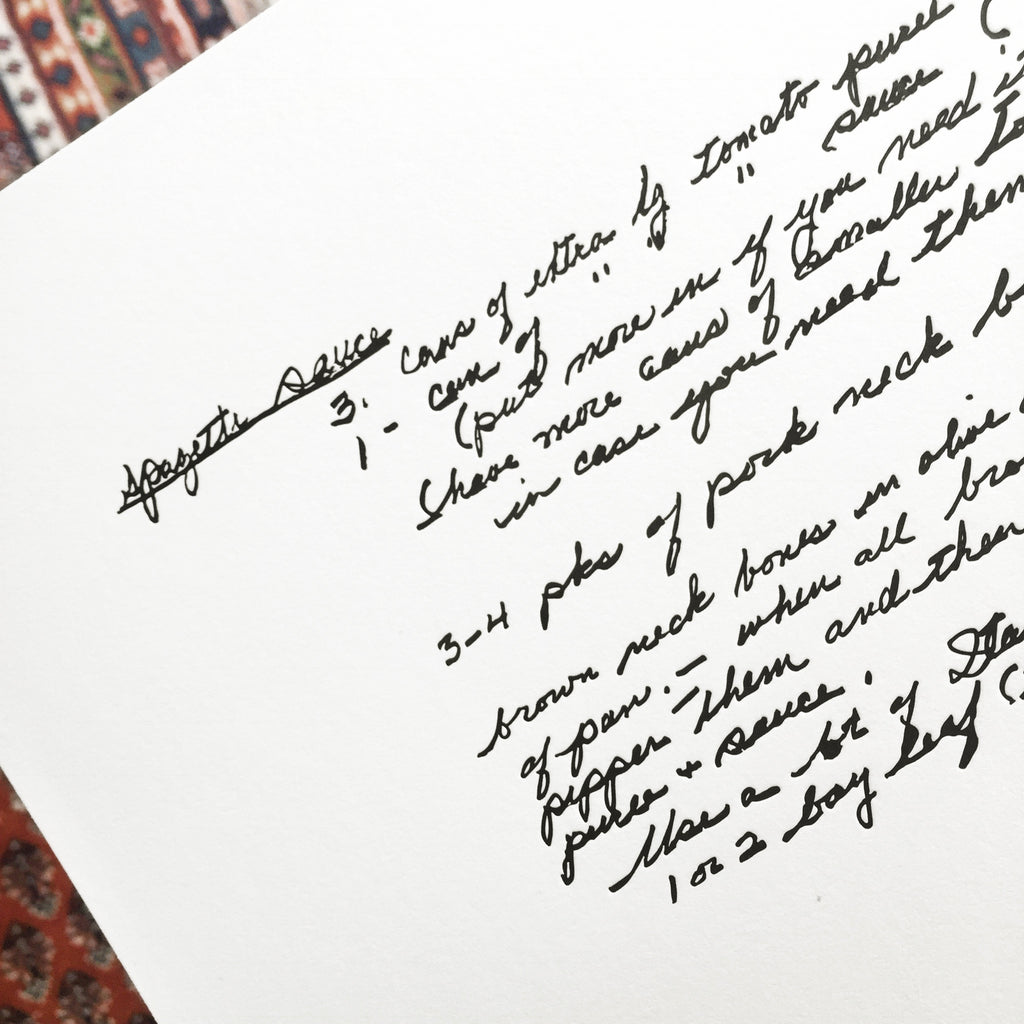 Spagetti Sauce
3. cans of extra lg tomato puree (
1 - can of " " " sauce
(put more in if you need i
(have more cans of smaller to
in case you need them
3-4 pks of pork neck b
brown neck bones in olive
of pan. - when all bro
pipper them and then
puree + sauce.
Use a lot of Sta
1 or 2 bay leaf (